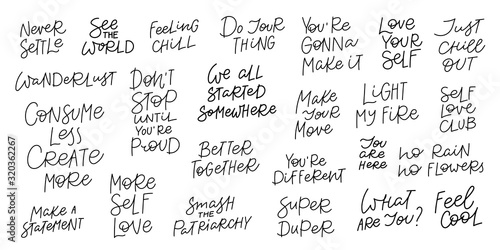 Never
Settle
See
the
World
Feeling
Chill
Do Your
Thing
You're
Gonna
Make it
Love
Your
Self
Just
Chill
Out
Wanderlust
Don't
Stop
Until
You're
Proud
We all
Started
Somewhere
Make
Your
Move
Light
My Fire
Self
Love
Club
Consume
Less
Create
More
Better
Together
You
Are
Here
No Rain
No Flowers
You're
Different
Make a
Statement
More
Self
Love
Smash
the
Patriarchy
Super
Duper
What
Are You?
Feel
Cool
Adobe Stock | #320362267